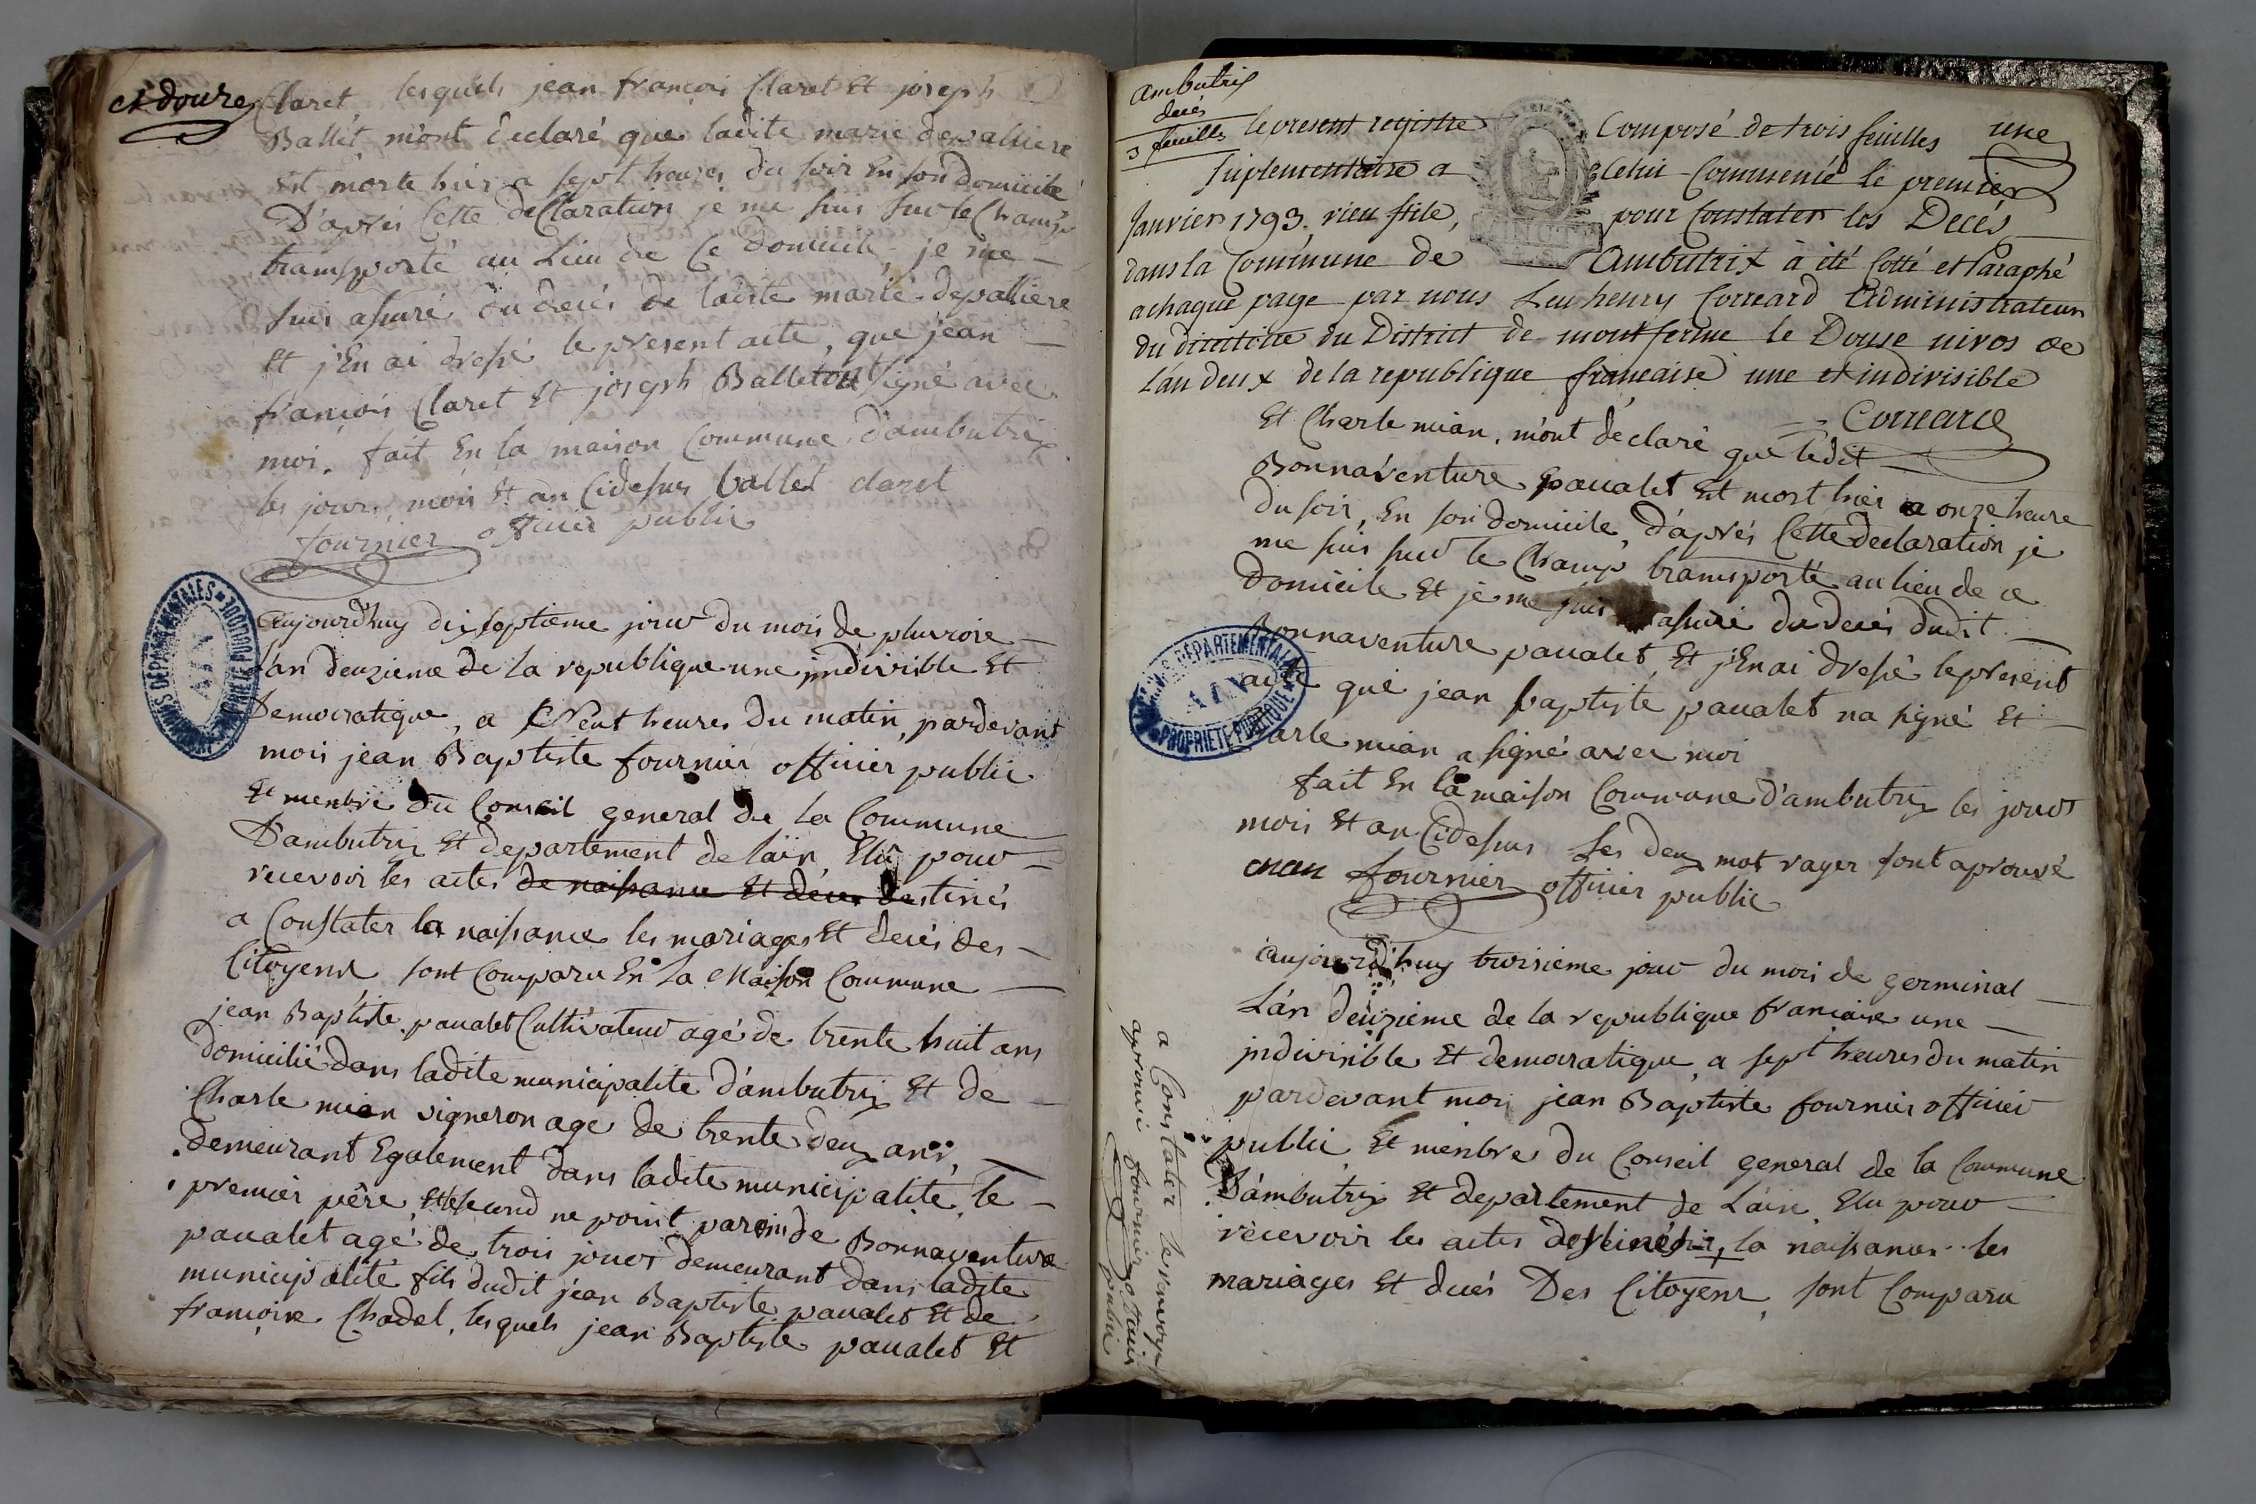 et douze
Claret lesquels jean françois Claret Et joseph
Ballet m'ont declaré que ladite marie depalliere
Est morte hier a sept heures du soir En son domicile
D'aprés Cette declaration je me suis sur le Champ
transporté au Lieu de Ce domicile, je me
suis assuré du decés de ladite marie depalliere
Et j'En ai dressé le present acte, que jean
françois Claret Et joseph Ballet ont signé avec
moi. fait En la maison Commune d'ambutrix
les jour, mois Et an Cidessus ballet claret
fournier officier public
aujourd'huy dix septieme jour du mois de pluviose
Lan deuzieme de la republique une jndivisible Et
Democratique, a Neuf heures du matin, pardevant
moi jean Baptiste fournier officier public
Et menbre du Conseil general de la Commune
D'ambutrix Et departement de lain Elu pour
recevoir les actes de naissance Et déces destinés
a Constater la naissance les mariages Et decés des
Citoyens sont Comparu En La Maison Commune
jean Baptiste paualet Cultivateur agé de trente huit ans
domicilié dans ladite municipalité d'ambutrix Et de
Charle mian vigneron agé de trente deux ans,
demeurant Egalement dans ladite municipalité, le
premier pêre, Et le second ne point parein de Bonnaventure
paualet agé de trois jours demeurant dans ladite
municipalité fils dudit jean Baptiste paualet Et de
françoise Chadel, lesquels jean Baptiste paualet Et
Ambutrix
decés
3 feuilles
le present registre Composé de trois feuilles une
suplementaire a Celui Commencé le premier
Janvier 1793. vieu stile, pour Constater les Decés
dans la Commune de Ambutrix à été Cotté et Paraphé
a chaque page par nous Leu henry Correard Administrateur
du directoire du District de montferme le Douse nivos de
L'an deux de la republique francaise une et indivisible
Correard
Et Charle mian, m'ont declaré que ledit
Bonnaventure paualet Est mort hier a onze heure
du soir, En son domicile, d'aprés Cette declaration je
me suis sur le Champ transporté au lieu de ce
domicile Et je me suis assuré du decés dudit
Bonnaventure paualet, Et j'En ai dressé le present
acte que jean baptiste paualet na signé Et
Charle mian a signé avec moi
fait En la maison Commune d'ambutrix les jours
mois Et an Cidessus Les deux mot rayer sont aprouvé
mian fournier officier public
aujourd'huy troisieme jour du mois de germinal
L'an deuzieme de la republique francaise une
jndivisible Et democratique, a sept heures du matin
pardevant moi jean Baptiste fournier officier
public Et menbre du Conseil general de la Commune
D'ambutrix Et departement de Lain, Elu pour
recevoir les actes destinés, la naissance les
mariages Et decés Des Citoyens, sont Comparu
a Constater le renvoye
aprouvé fournier officier
public
ARCHIVES DÉPARTEMENTALES
AIN
PROPRIÉTÉ PUBLIQUE
ARCHIVES DÉPARTEMENTALES
AIN
PROPRIÉTÉ PUBLIQUE